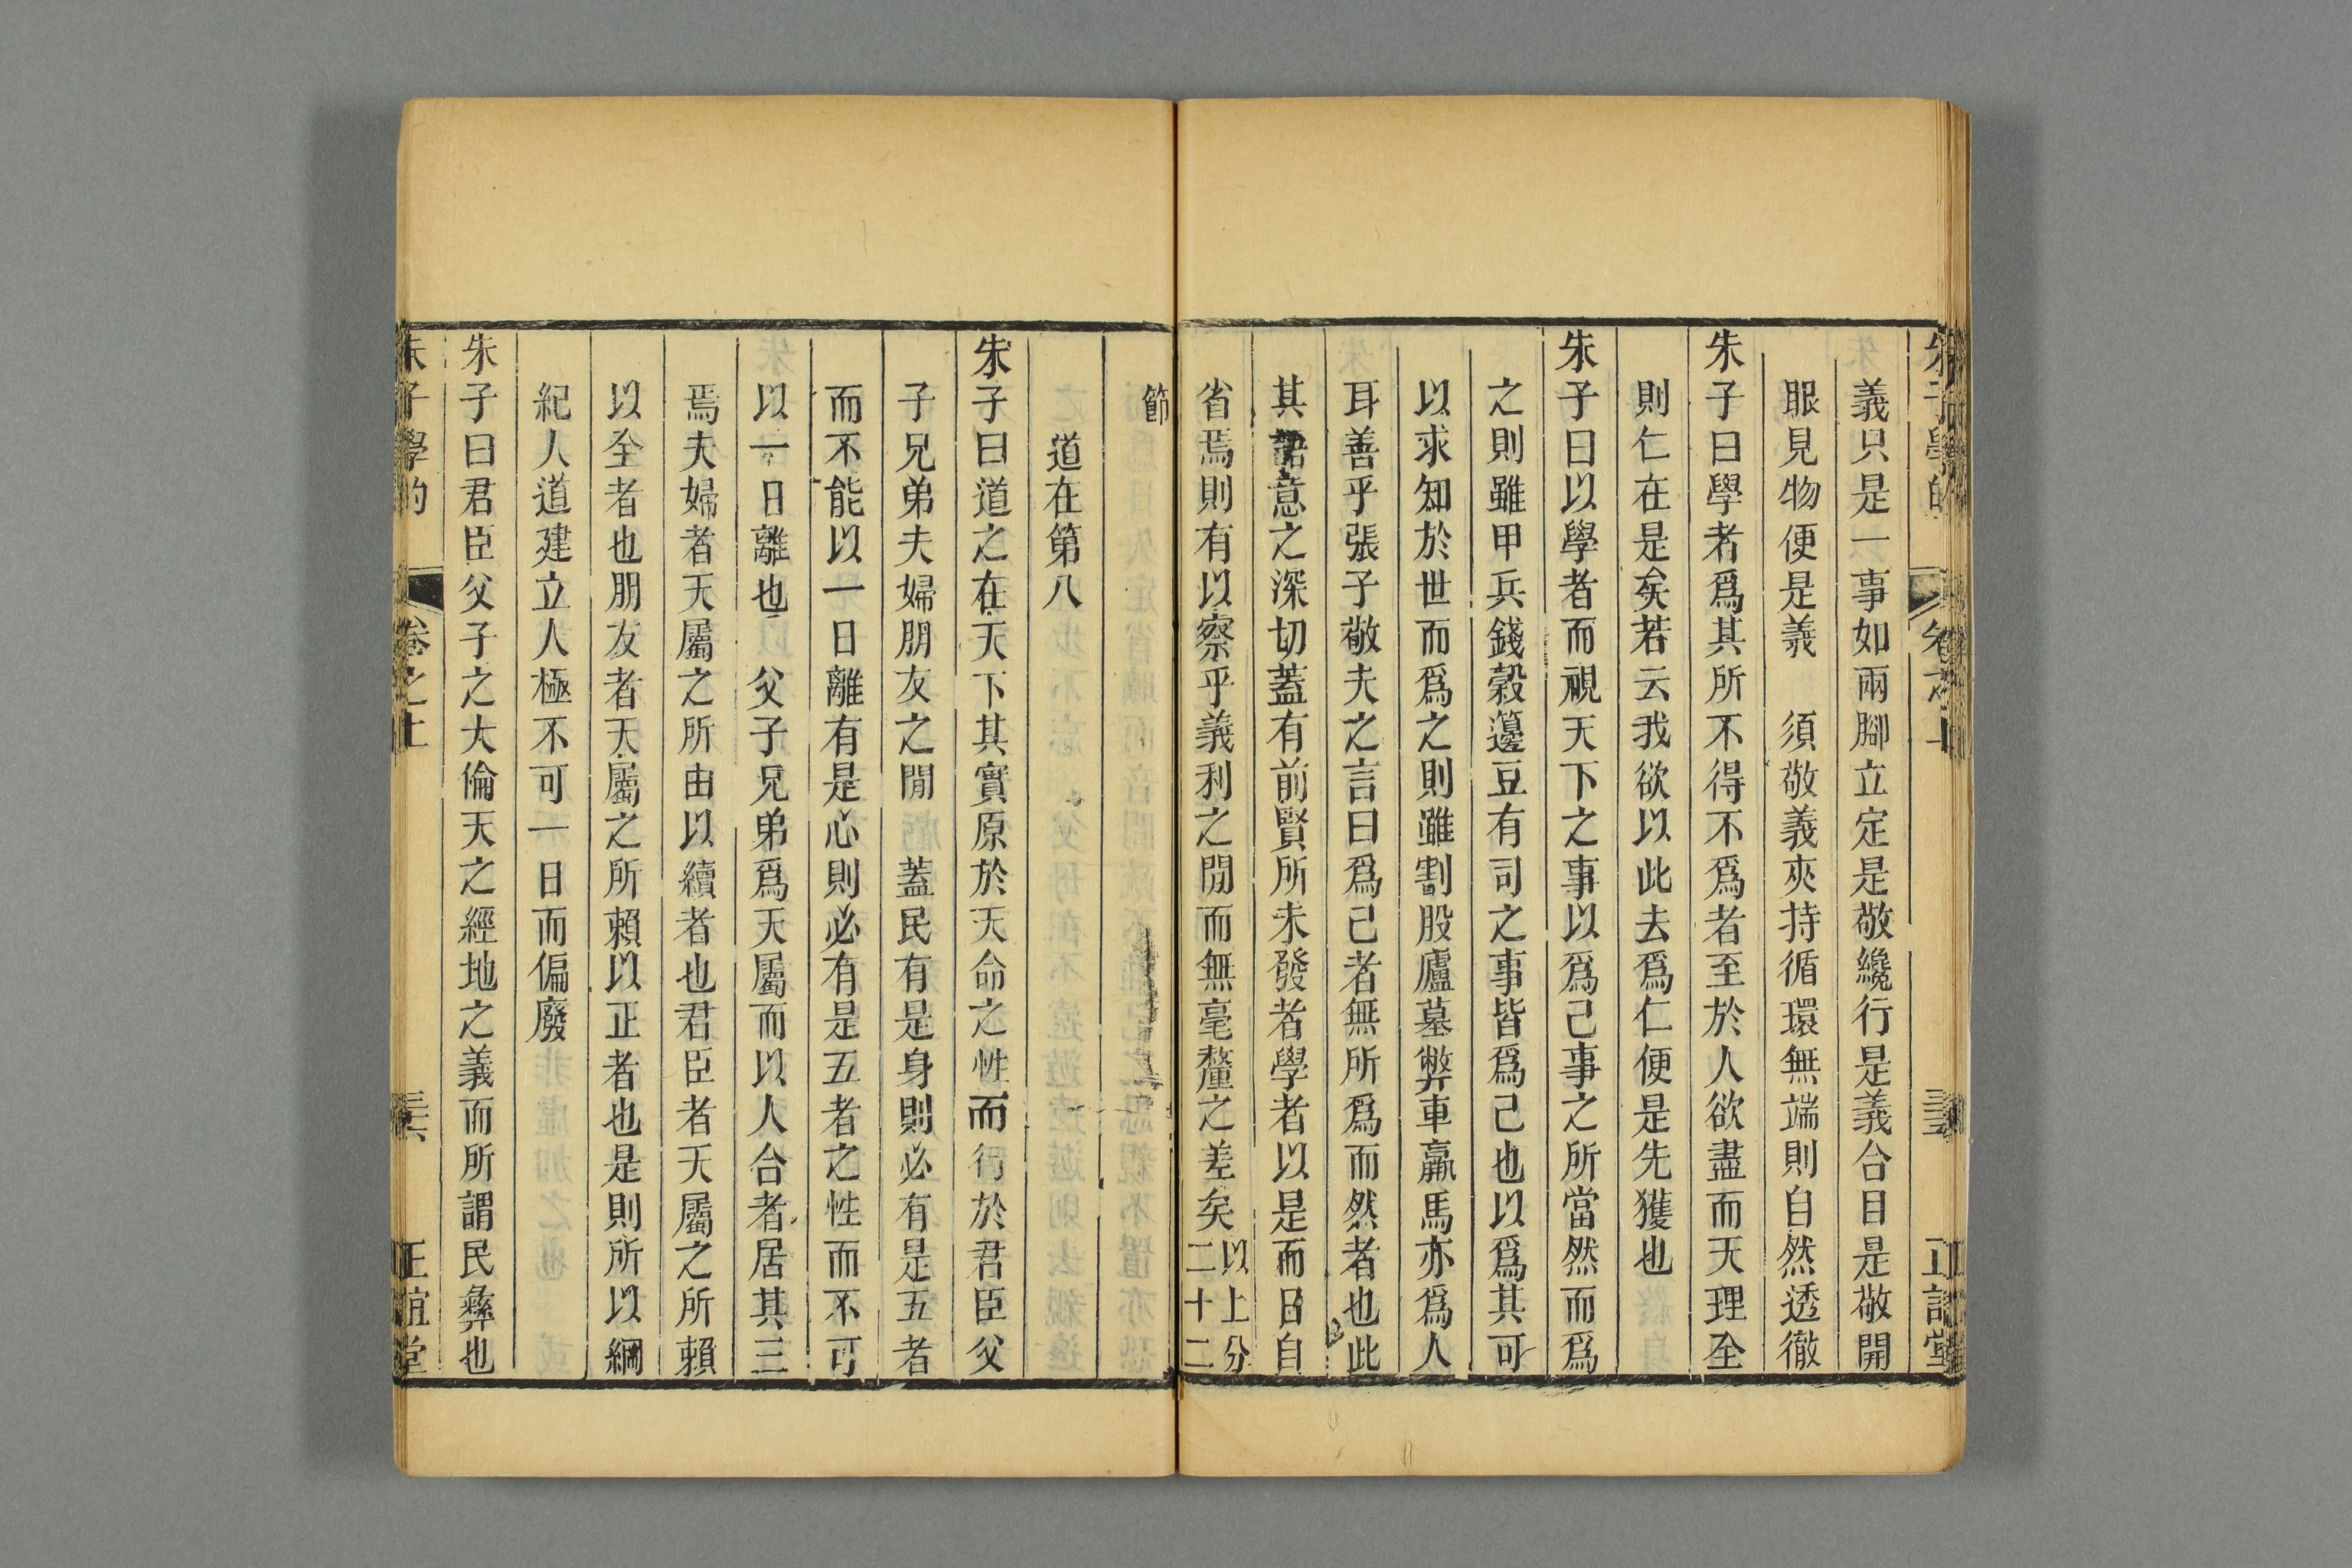 朱子學的 卷之上 正誼堂
義只是一事如兩腳立定是敬纔行是義合目是敬開
眼見物便是義 須敬義夾持循環無端則自然透徹
朱子曰學者爲其所不得不爲者至於人欲盡而天理全
則仁在是矣若云我欲以此去爲仁便是先獲也
朱子曰以學者而視天下之事以爲己事之所當然而爲
之則雖甲兵錢穀籩豆有司之事皆爲己也以爲其可
以求知於世而爲之則雖割股廬墓弊車羸馬亦爲人
耳善乎張子敬夫之言曰爲己者無所爲而然者也此
其語意之深切蓋有前賢所未發者學者以是而日自
省焉則有以察乎義利之閒而無毫釐之差矣以上分二十二
節
道在第八
朱子曰道之在天下其實原於天命之性而行於君臣父
子兄弟夫婦朋友之閒 蓋民有是身則必有是五者
而不能以一日離有是心則必有是五者之性而不可
以一日離也 父子兄弟爲天屬而以人合者居其三
焉夫婦者天屬之所由以續者也君臣者天屬之所賴
以全者也朋友者天屬之所賴以正者也是則所以綱
紀人道建立人極不可一日而偏廢
朱子曰君臣父子之大倫天之經地之義而所謂民彝也
朱子學的 卷之上 三六 正誼堂